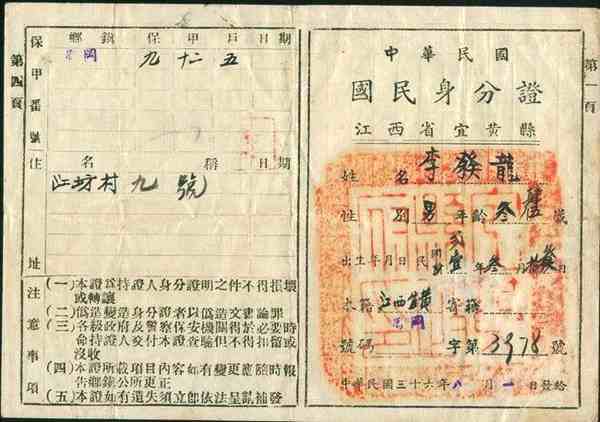 第一頁
中華民國
國民身分證
江西省宜黃縣
姓名 李發龍
性別 男 年齡 叁 歲
出生年月日 民 年 叁月 日
本籍 江西宜黃 寄籍
號碼 字第 3978 號
中華民國三十六年八月一日發給
第四頁
保甲番號
鄉鎮 保 甲 戶 日期
岡 九 十二 五
住址
名稱 日期
坊村九號
注意事項
(一)本證爲持證人身分證明之件不得損壞
或轉讓
(二)僞造變造身分證者以僞造文書論罪
(三)各級政府及警察保安機關得於必要時
命持證人交付本證查驗但不得扣留或
沒收
(四)本證所載項目內容如有變更應隨時報
告鄉鎮公所更正
(五)本證如有遺失須立卽依法呈請補發